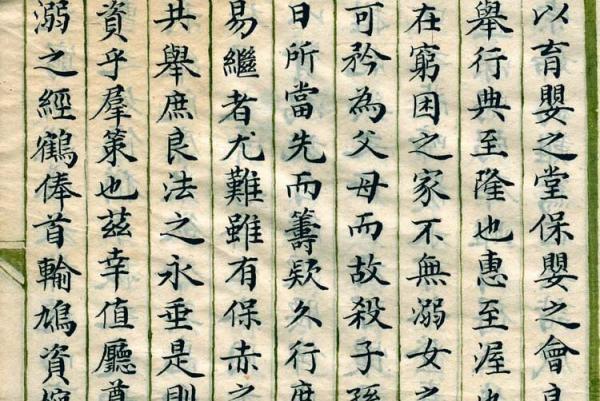 以育嬰之堂保嬰之會良
舉行典至隆也惠至渥也
在窮困之家不無溺女之
可矜為父母而故殺子孫
日所當先而籌欵久行度
易繼者尤難雖有保赤之
共舉庶良法之永垂是則
資乎羣策也茲幸值廳尊
溺之經鶴俸首輸鳩資